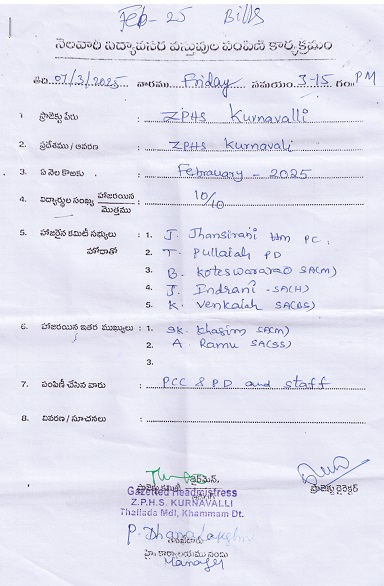 Feb-25 Bills
నెలవారి విద్యావసర వస్తువుల పంపిణి కార్యక్రమం
తేది 07/3/2025 వారము Friday సమయం 3-15 గం॥ PM
1 ప్రాజెక్టు పేరు : ZPHS Kurnavalli
2. ప్రదేశము / ఆవరణ : ZPHS Kurnavali
3. ఏ నెల కొఱకు : February - 2025
4. విద్యార్థుల సంఖ్య హాజరయిన / మొత్తము : 10/10
5. హాజరైన కమిటీ సభ్యులు : 1. J. Jhansirani HM PC,
హోదాతో 2. T. Pullaiah PD
3. B. Koteswararao SA(M)
4. J. Indrani - SA(H)
5. K. Venkaiah SA(BS)
6. హాజరయిన ఇతర ముఖ్యులు : 1. SK. Khasim SA(M)
2. A. Ramu SA(SS)
3.
7. పంపిణీ చేసిన వారు : PCC & PD and staff
8. వివరణ / సూచనలు :
ఛైర్మెన్.
ప్రాజెక్టు కమిటీ ప్రాజెక్టు డైరెక్టర్
Gazetted Headmistress
Z.P.H.S. KURNAVALLI
Thallada Mdl, Khammam Dt.
P. Dhanalakshmi
హై, కార్యాలయము నందు
Manager